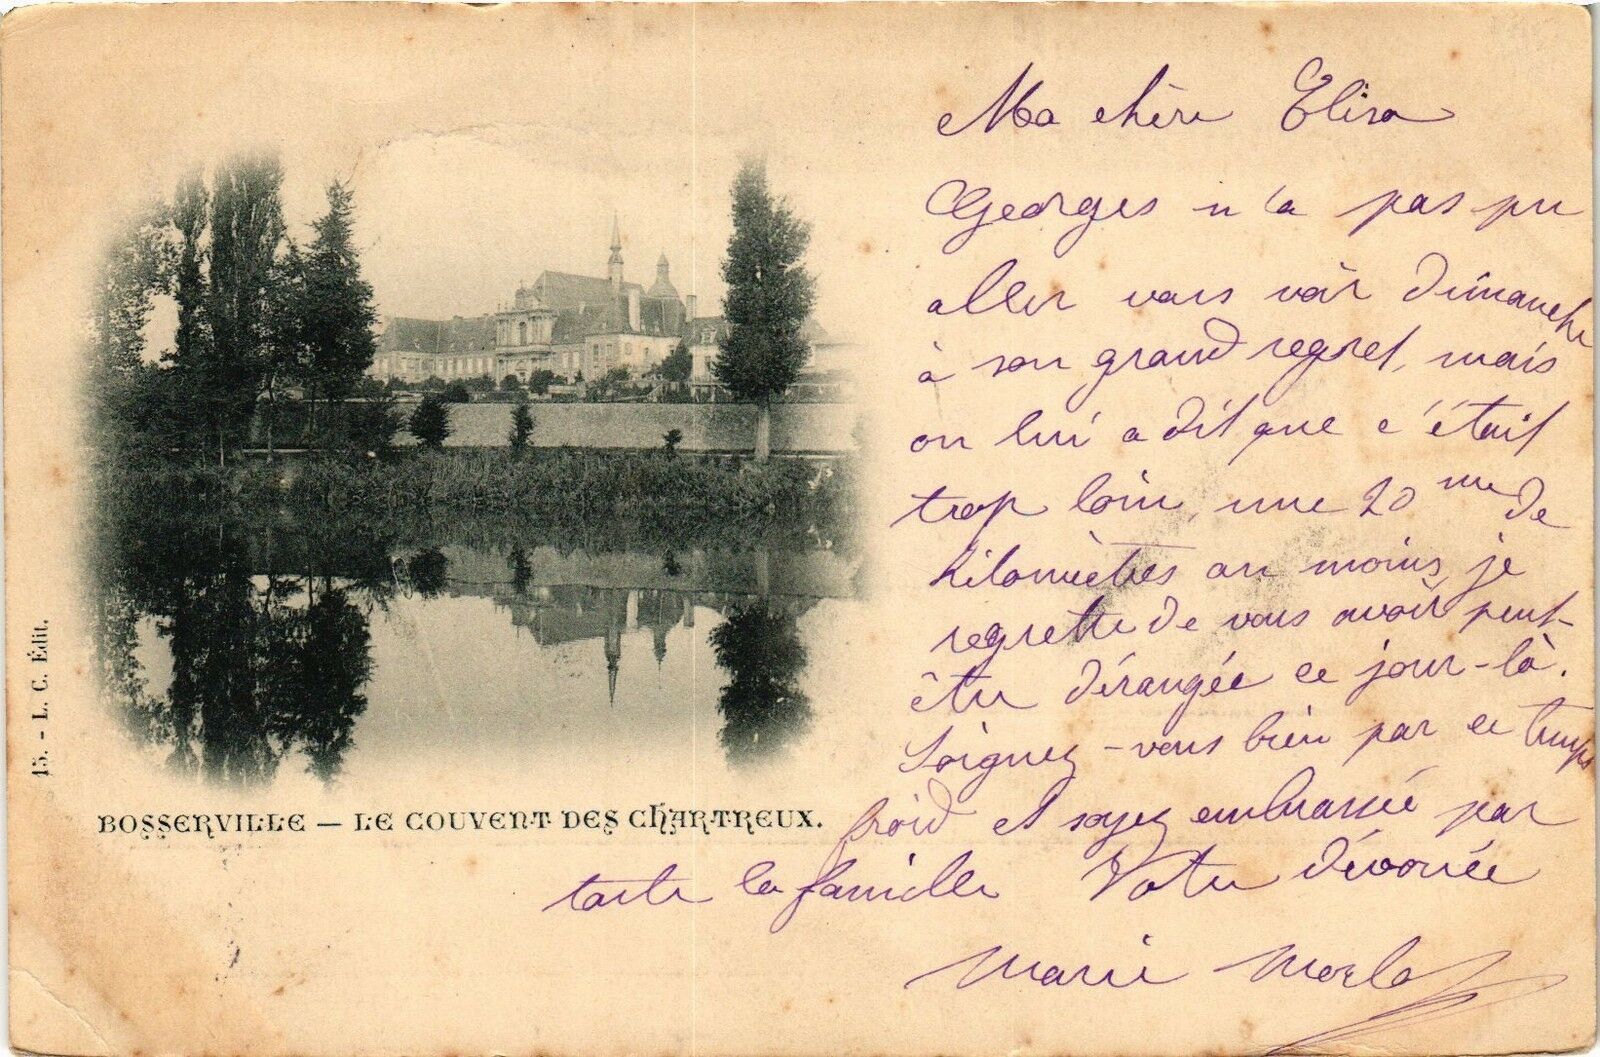 Ma chère Elisa
Georges n'a pas pu
aller vous voir Dimanche
à son grand regret, mais
on lui a dit que c'était
trop loin, une 20 me de
Kilomètres au moins, je
regrette de vous avoir peut-
être dérangée ce jour-là.
Soignez-vous bien par ce temps
froid et soyez embrassée par
toute la famille Votre dévouée
Marie
15. - L. C. Édit.
BOSSERVILLE — LE COUVENT DES CHARTREUX.